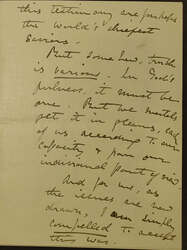 this testimony are perhaps
the world's deepest
saviors.
But some how, truth
is various. In God's
fulness, it must be
one. But we mortals
get it in gleams, each
of us according to own
capacity, & from our
individual point of view
And for us, as
the issues are now
drawn, I am simply
compelled to accept
this war.